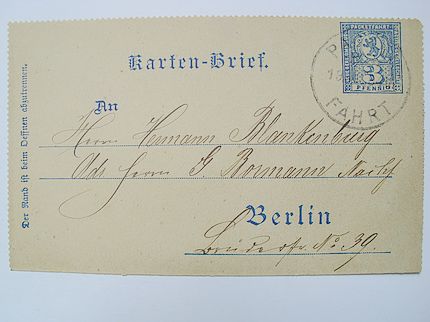 Karten-Brief.
PACKETFAHRT
3
PFENNIG
FAHRT
An
Herrn Hermann Blankenburg
Adr Herrn G Bormann Nachf
Berlin
Brüderstr. No 39.
Der Rand ist beim Oeffnen abzutrennen.